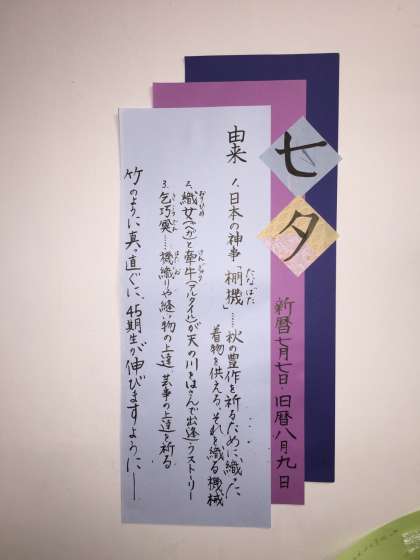 七夕
新暦七月七日・旧暦八月九日
由来
1.日本の神事「棚機」……秋の豊作を祈るために、織った
たなばた
着物を供える。それを織る機械
2.織女(ベガ)と牽牛(アルタイル)が天の川をはさんで出逢うストーリー
おりひめ
けんぎゅう
3.乞巧奠……機織りや縫い物の上達 芸事の上達を祈る
きっこうでん
はたお
竹のように真っ直ぐに、45期生が伸びますように―